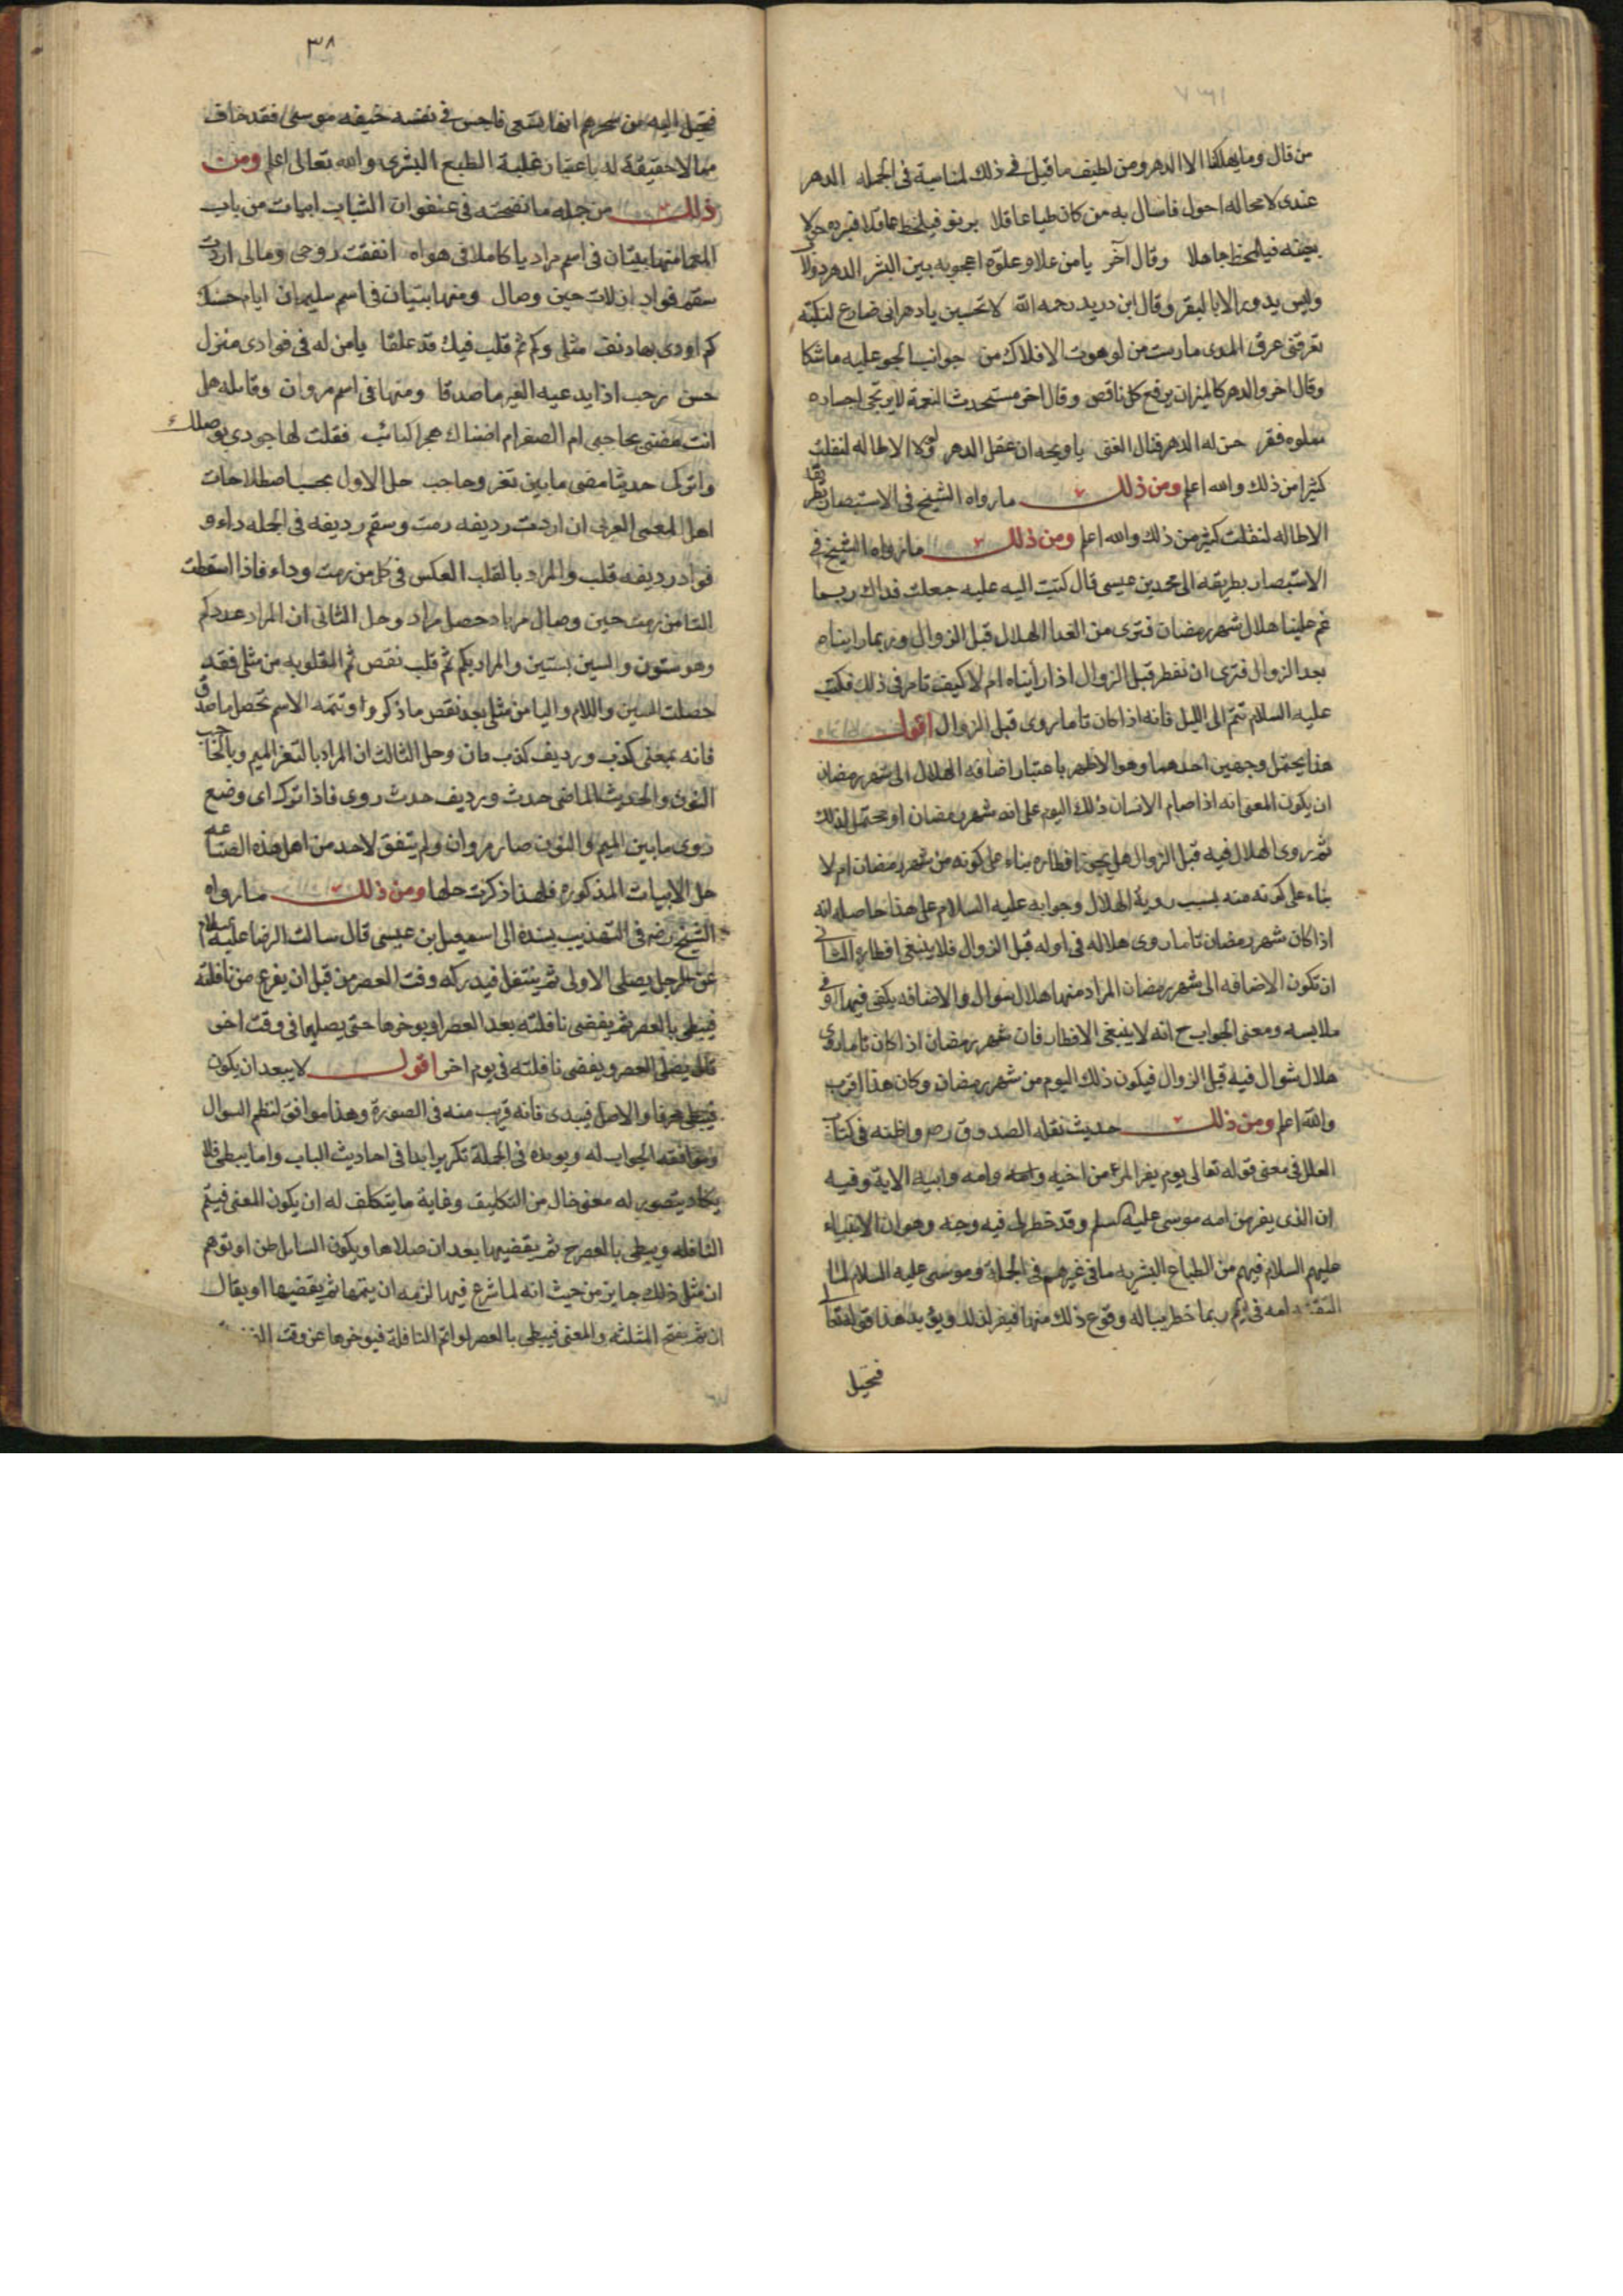 من قال وما يهلكنا الا الدهر ومن لطيف ما قيل في ذلك لمناسبة في الجمله الدهر
عندى لا محاله احول فاسال به من كان طبا عاقلا يرنو فيلحظ عاقلا فيرده حى لا
يجيئه فيلحظ جاهلا وقال آخر يا من علا وعلوه اعجوبه بين البشر الدهر دولا
وليس يدور الا بالبقر وقال ابن دريد رحمه الله لا تحسبن يا دهر انى ضارع لنكبة
تعرقنى عرق المدى مارست من لو هوت الافلاك من جوانب الجو عليه ما شكا
وقال اخر والدهر كالميزان يرفع كل ناقص وقال اخر مستحدث النعمة لا يرتجى احساره
مملوه فقر حن له الدهر فنال الغنى يا ويحه ان عقل الدهر ولولا الاطاله لنقلت
كثيرا من ذلك والله اعلم ومن ذلك ما رواه الشيخ في الاستبصار
الاطاله لنقلت كثير من ذلك والله اعلم ومن ذلك ما رواه الشيخ في
الاستبصار بطريقه الى محمد بن عيسى قال كتبت اليه عليه جعلت فداك ربما
غم علينا هلال شهر رمضان فترى من الغد الهلال قبل الزوال وربما رايناه
بعد الزوال فترى ان نفطر قبل الزوال اذا رأيناه ام لا كيف تامر في ذلك فكتب
عليه السلام تتم الى الليل فانه اذا كان تاما روى قبل الزوال اقول
هذا يحتمل وجهين احدهما وهو الاظهر باعتبار اضافه الهلال الى شهر رمضان
ان يكون المعنى انه اذا صام الانسان ذلك اليوم على انه شهر رمضان او يحتمل لذلك
ثم روى الهلال فيه قبل الزوال هل يجوز افطاره بناء على كونه من شهر رمضان ام لا
بناء على كونه منه بسبب روية الهلال وجوابه عليه السلام على هذا حاصله انه
اذا كان شهر رمضان تاما روى هلاله في اوله قبل الزوال فلا ينبغى افطاره الثانى
ان تكون الاضافه الى شهر رمضان المراد منها هلال شوال والاضافه يكفى فيها ادنى
ملابسه ومعنى الجواب ح انه لا ينبغى الافطار فان شهر رمضان اذا كان تاما روى
هلال شوال فيه قبل الزوال فيكون ذلك اليوم من شهر رمضان وكان هذا اقرب
والله اعلم ومن ذلك حديث نقله الصدوق ره واظنه في كتاب
العلل في معنى قوله تعالى يوم يفر المرء من اخيه وامه وابيه الاية وفيه
ان الذى يفر من امه موسى عليه السلم وقد خطر لى فيه وجه وهو ان الانبياء
عليهم السلام فيهم من الطباع البشريه ما في غيرهم في الجملة وموسى عليه السلام لما
القته امه في اليم ربما خطر بباله وقوع ذلك منها فيفر لذلك ويؤيد هذا قوله تعالى
فخيل
٣٨
فخيل اليه من سحرهم انها تسعى فاوجس في نفسه خيفه موسى فقد خاف
مما لا حقيقة له باعتبار غلبة الطبع البشرى والله تعالى اعلم ومن
ذلك من جمله ما نضحته في عنفوان الشباب ابيات من باب
المعما منها بيتان في اسم مراد يا كاملا في هواه انفقت روحى ومالى اردت
سقم فواد ان لات حين وصال ومنها بيتيان في اسم سليمان ايام حسنك
كم اودى بها دنف مثلى وكم ثم قلب فيك قد علقا يا من له في فوادى منزل
حسن رحب اذا يدعيه الغير ما صدقا ومنها في اسم مروان وقائله هل
انت مفتى بحاجبى ام الصغر ام اضناك هجر الحبائب فقلت لها جودى بوصلك
واتركـ حديثا مضى ما بين ثغر وحاجب حل الاول بحسب اصطلاحات
اهل المعمى العربى ان اردت رديفه رمت وسقم رديفه في الجمله داء و
فواد رديفه قلب والمراد بالقلب العكس في كل من رمت وداء فاذا اسقطت
التا من رمت حين وصال مرباد حصل مراد وحل الثانى ان المراد عدد كم
وهو ستون والسين بستين والمراد بكم ثم قلب نقص ثم المقلوبه من مثلى فقد
حصلت السين واللام واليا من مثلى بعد نقص ما ذكر واو تتمه الاسم تحصل ما صدق
فانه بمعنى كذب ورديف كذب مان وحل الثالث ان المراد بالثغر الميم وبالحاجب
النون والحديث الماضى حدث ورديف حدث روى فاذا ترك اى وضع
روى ما بين الميم والنون صار مروان ولم يتفق لاحد من اهل هذه الصناعه
حل الابيات المذكوره فلهذا ذكرت حلها ومن ذلك ما رواه
الشيخ رضه في التهذيب بسنده الى اسمعيل ابن عيسى قال سالت الرضا عليه السلام
عن الرجل يصلى الاولى ثم يتنفل فيدركه وقت العصر من قبل ان يفرغ من نافلته
فيبطى بالعصر ثم يقضى نافلته بعد العصر او يوخرها حتى يصليها في وقت اخر
قال يصلى العصر ويقضى نافلته في يوم اخر اقول لا يبعد ان يكون
فيبطى محرفا والاصل فيبدى فانه قريب منه في الصورة وهذا موافق لنظم السوال
وموافقه الجواب له ويويده في الجملة تكرير ابدا في احاديث الباب واما يبطى فلا
يكاد يتصور له معنى خال من التكليف وغاية ما يتكلف له ان يكون المعنى فيتم
النافله ويبطى بالعصر ح ثم يقضيها بعد ان صلاها ويكون السائل ظن او توهم
ان مثل ذلك جايز من حيث انه لما شرع فيها لزمه ان يتمها ثم يقضيها او يقال
ان ثم بفتح المثلثه والمعنى فيبطى بالعصر لو اتم النافلة فيوخرها عن وقت